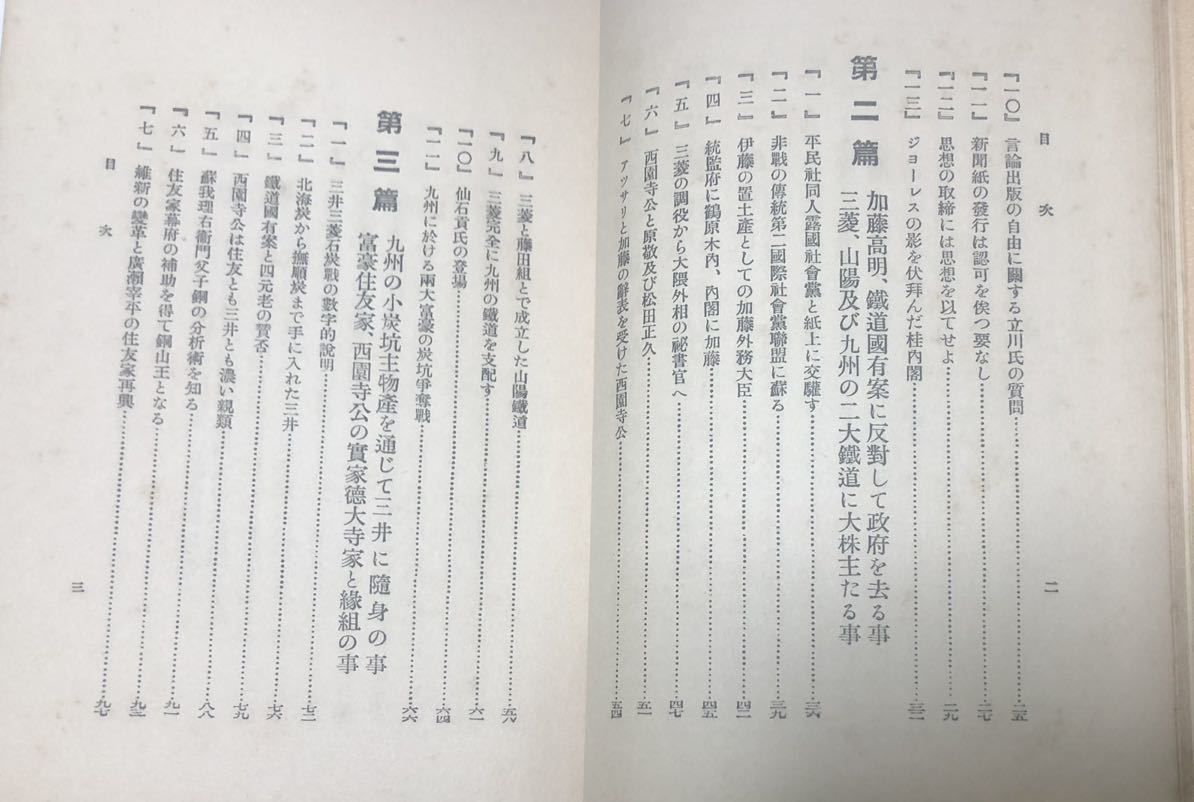 目次
二
『一〇』 言論出版の自由に關する立川氏の質問……二五
『一一』 新聞紙の發行は認可を俟つ要なし……二七
『一二』 思想の取締には思想を以てせよ……二九
『一三』 ジョーレスの影を伏拜んだ桂內閣……三二
第二篇
加藤高明、鐵道國有案に反對して政府を去る事
三菱、山陽及び九州の二大鐵道に大株主たる事
『一』 平民社同人露國社會黨と紙上に交驩す……三六
『二』 非戰の傳統第二國際社會黨聯盟に蘇る……三九
『三』 伊藤の置土產としての加藤外務大臣……四二
『四』 統監府に鶴原木內、內閣に加藤……四五
『五』 三菱の調役から大隈外相の祕書官へ……四七
『六』 西園寺公と原敬及び松田正久……五一
『七』 アツサリと加藤の辭表を受けた西園寺公……五四
『八』 三菱と藤田組とで成立した山陽鐵道……五六
『九』 三菱完全に九州の鐵道を支配す……六一
『一〇』 仙石貢氏の登場……六四
『一一』 九州に於ける兩大富豪の炭坑爭奪戰……六六
第三篇
九州の小炭坑主物產を通じて三井に隨身の事
富豪住友家、西園寺公の實家德大寺家と緣組の事
『一』 三井三菱石炭戰の數字的說明……七二
『二』 北海炭から撫順炭まで手に入れた三井
『三』 鐵道國有案と四元老の贊否……七六
『四』 西園寺公は住友とも三井とも濃い親類……七九
『五』 蘇我理右衞門父子銅の分析術を知る……八八
『六』 住友家幕府の補助を得て銅山王となる……九一
『七』 維新の變革と廣瀨宰平の住友家再興……九七
目次
三